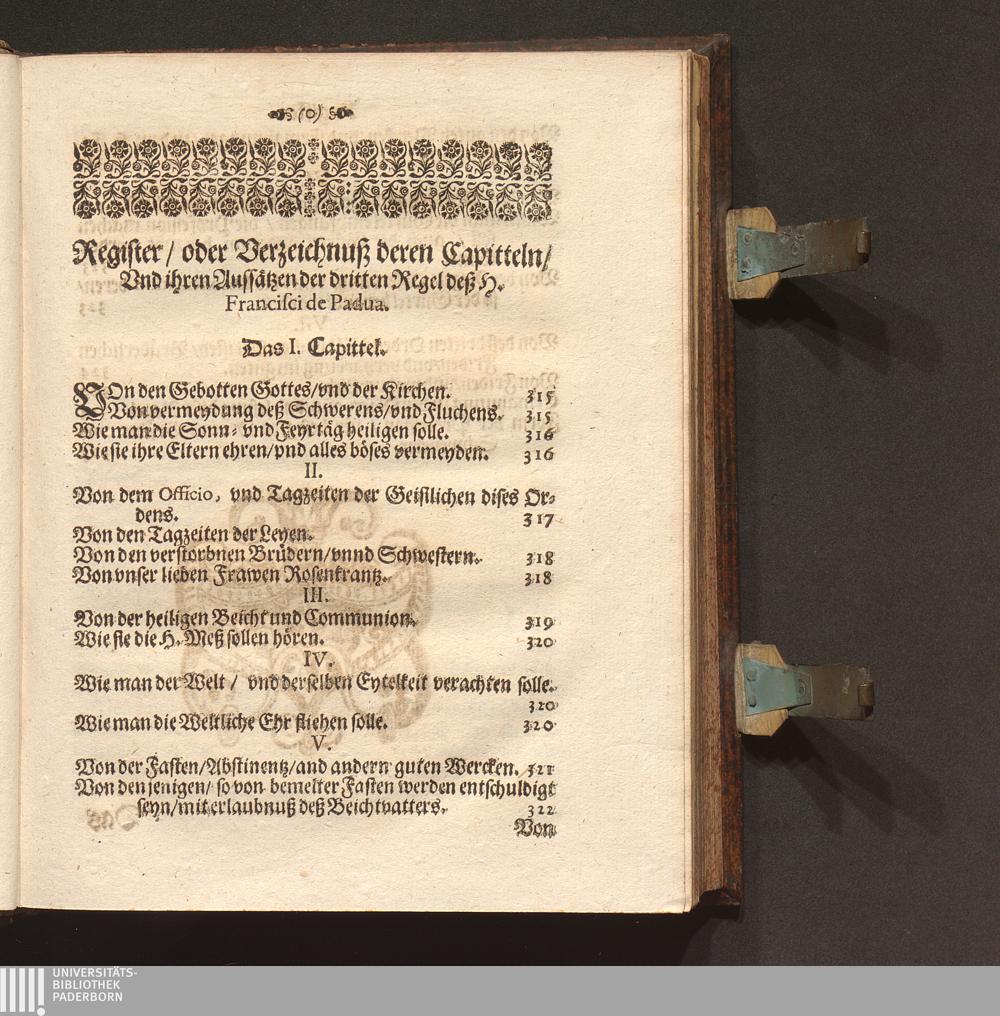 (0)
Register/ oder Verzeichnuß deren Capitteln/
Vnd ihren Aussätzen der dritten Regel deß H.
Francisci de Padua.
Das I. Capittel.
VOn den Gebotten Gottes/vnd der Kirchen. 315
Von vermeydung deß Schwerens/vnd Fluchens. 315
Wie man die Sonn- vnd Feyrtäg heiligen solle. 316
Wie sie ihre Eltern ehren/vnd alles böses vermeyden. 316
II.
Von dem Officio, vnd Tagzeiten der Geistlichen dises Or-
dens. 317
Von den Tagzeiten der Leyen.
Von den verstorbnen Brüdern/vnnd Schwestern. 318
Von vnser lieben Frawen Rosenkrantz. 318
III.
Von der heiligen Beicht und Communion. 319
Wie sie die H. Meß sollen hören. 320
IV.
Wie man der Welt / vnd derselben Eytelkeit verachten solle.
320
Wie man die Weltliche Ehr fliehen solle. 320
V.
Von der Fasten/Abstinentz/and andern guten Wercken. 321
Von den jenigen/ so von bemelter Fasten werden entschuldigt
seyn/mit erlaubnuß deß Beichtvatters. 322
Von
UNIVERSITÄTS-
BIBLIOTHEK
PADERBORN